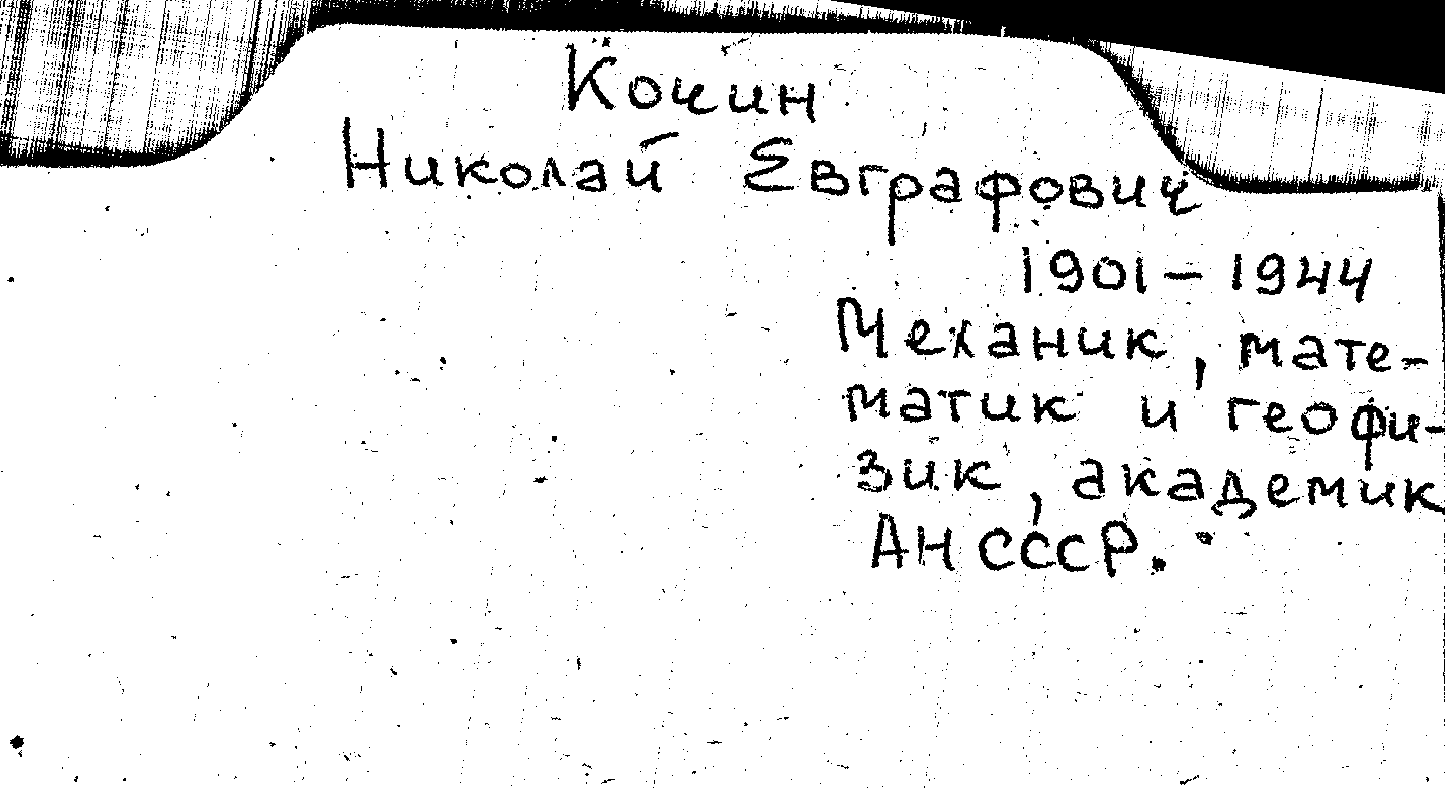 Кочин
Николай Евграфович
1901-1944
Механик, мате-
матик и геофи-
зик, академик
АН СССР.